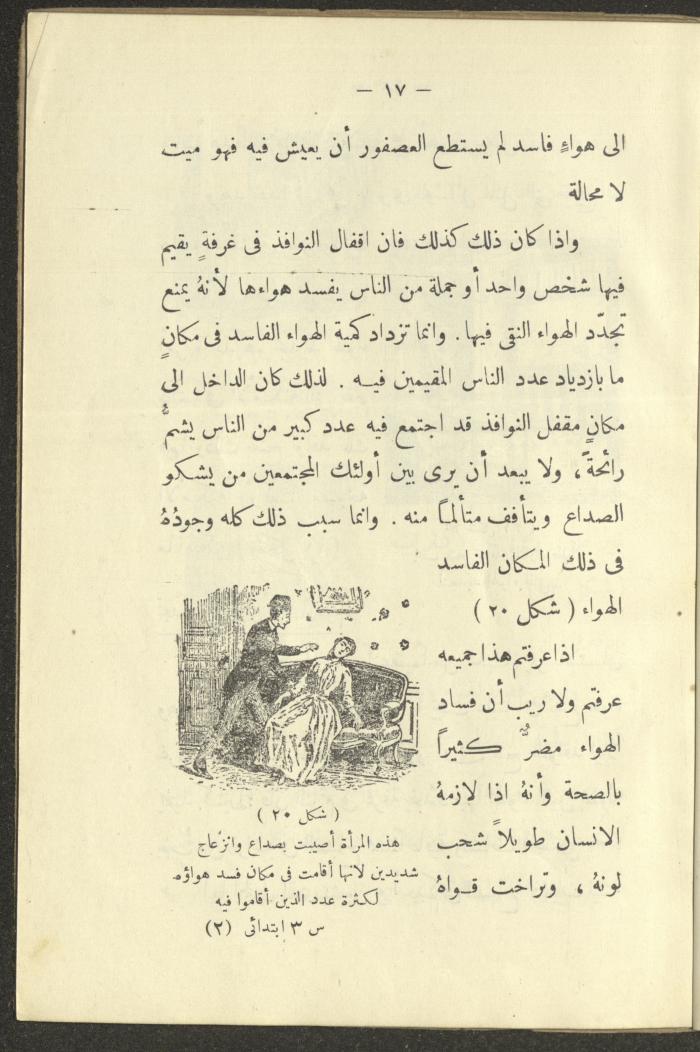 — ١٧ —
الى هواءٍ فاسد لم يستطع العصفور أن يعيش فيه فهو ميت
لا محالة
واذا كان ذلك كذلك فان اقفال النوافذ فى غرفةٍ يقيم
فيها شخص واحد أو جملة من الناس يفسد هواءها لأنهُ يمنع
تجدّد الهواء النقى فيها . وانما تزداد كمية الهواء الفاسد فى مكانٍ
ما بازدياد عدد الناس المقيمين فيه . لذلك كان الداخل الى
مكانٍ مقفل النوافذ قد اجتمع فيه عدد كبير من الناس يشمُّ
رائحةً ، ولا يبعد أن يرى بين أولئك المجتمعين من يشكو
الصداع ويتأفف متألماً منه . وانما سبب ذلك كله وجودُهُ
فى ذلك المكان الفاسد
الهواء ( شكل ٢٠ )
اذا عرفتم هذا جميعه
عرفتم ولا ريب أن فساد
الهواء مضرٌّ كثيراً
بالصحة وأنهُ اذا لازمهُ
الانسان طويلاً شحب
لونهُ ، وتراخت قواهُ
( شكل ٢٠ )
هذه المرأة أصيبت بصداع وانزعاج
شديدين لانها أقامت فى مكان فسد هواؤه
لكثرة عدد الذين أقاموا فيه
س ٣ ابتدائى (٢)